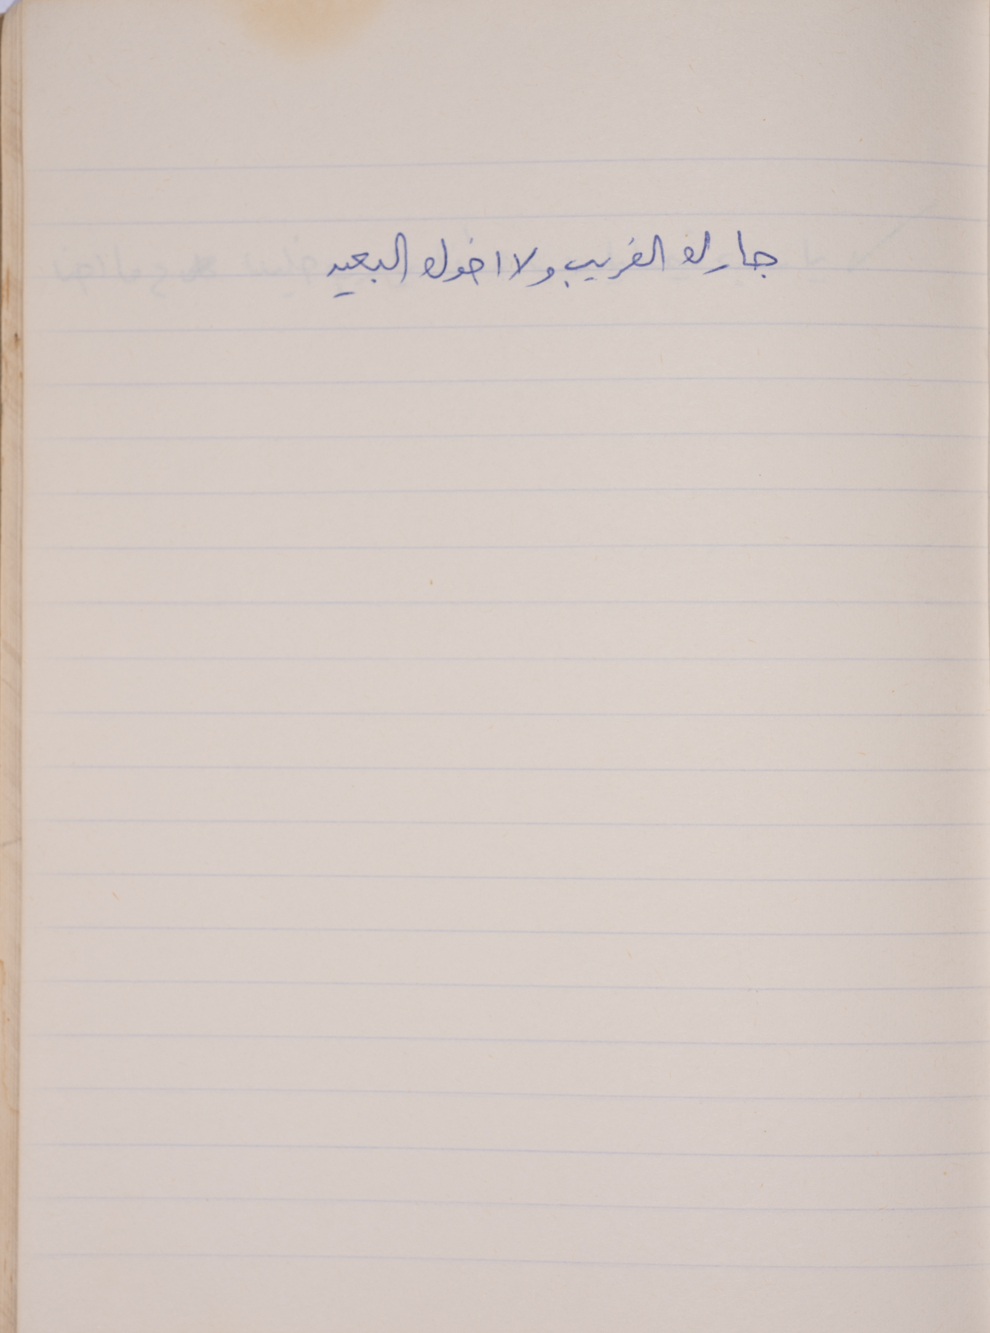 جارك القريب ولا اخوك البعيد